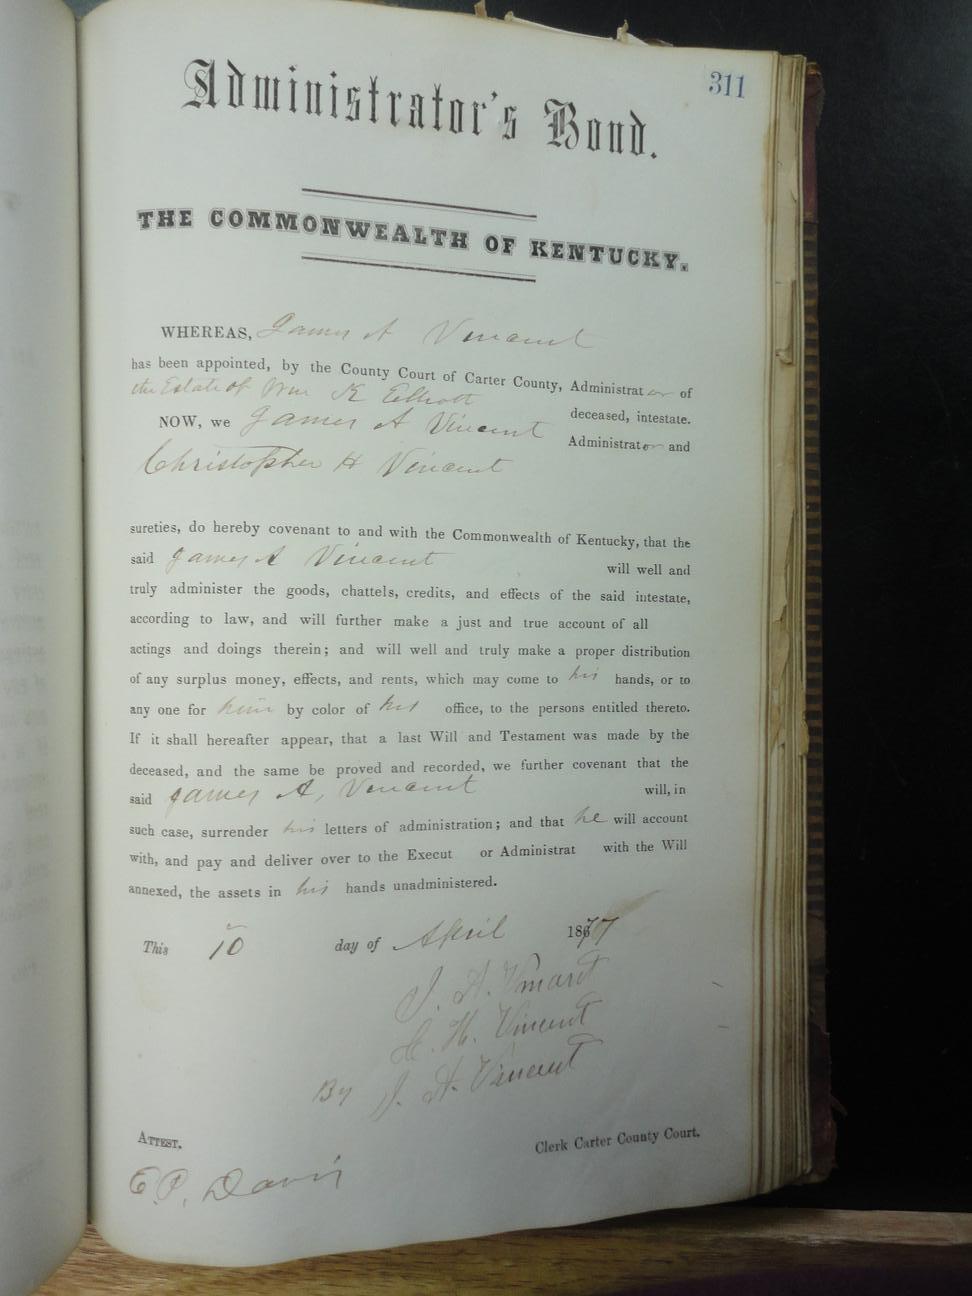 311
Administrator's Bond.
THE COMMONWEALTH OF KENTUCKY.
WHEREAS, James A Vincent
has been appointed, by the County Court of Carter County, Administrator of
the Estate of Wm K Elliott deceased, intestate.
NOW, we James A Vincent Administrator and
Christopher H Vincent
sureties, do hereby covenant to and with the Commonwealth of Kentucky, that the
said James A Vincent will well and
truly administer the goods, chattels, credits, and effects of the said intestate,
according to law, and will further make a just and true account of all
actings and doings therein; and will well and truly make a proper distribution
of any surplus money, effects, and rents, which may come to his hands, or to
any one for him by color of his office, to the persons entitled thereto.
If it shall hereafter appear, that a last Will and Testament was made by the
deceased, and the same be proved and recorded, we further covenant that the
said James A, Vincent will, in
such case, surrender his letters of administration; and that he will account
with, and pay and deliver over to the Execut or Administrat with the Will
annexed, the assets in his hands unadministered.
This 10 day of April 1877
J. A. Vincent
C. H. Vincent
By J. A. Vincent
ATTEST.
Clerk Carter County Court.
E. P. Davis